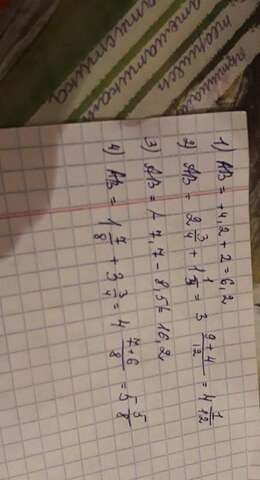 математика
математикан
1) AB = +4,2 + 2 = 6,2
2) AB = 2 3/4 + 1 1/3 = 3 (9+4)/12 = 4 1/12
3) AB = |-7,7 - 8,5| = 16,2
4) AB = 1 7/8 + 3 3/4 = 4 (7+6)/8 = 5 5/8